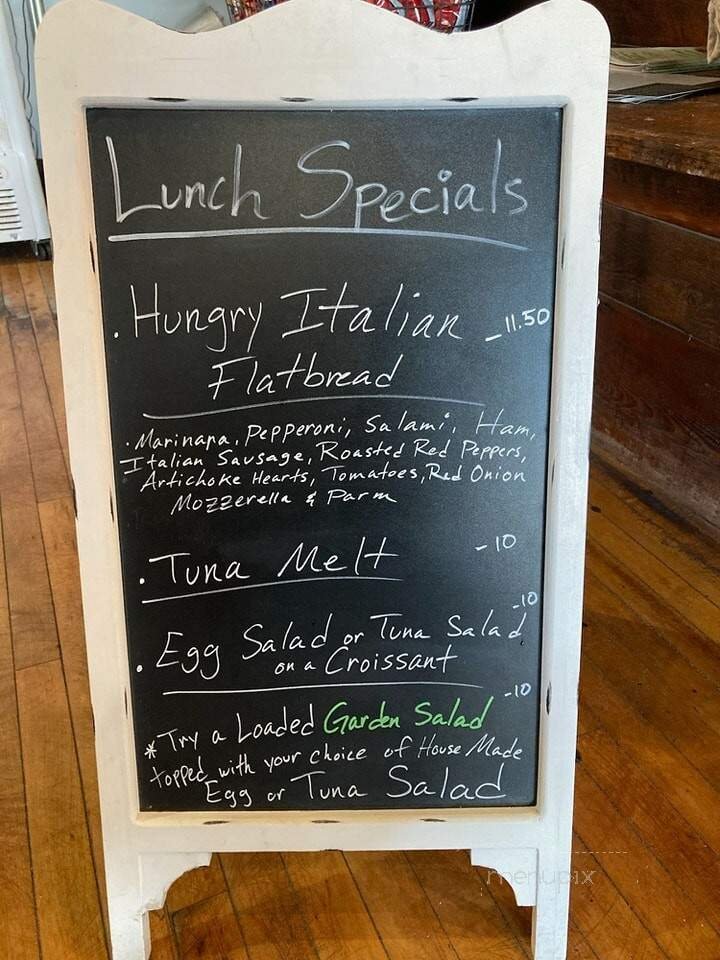 Lunch Specials
. Hungry Italian - 11.50
Flatbread
. Marinara, Pepperoni, Salami, Ham,
Italian Sausage, Roasted Red Peppers,
Artichoke Hearts, Tomatoes, Red Onion
Mozzerella & Parm
. Tuna Melt - 10
. Egg Salad or Tuna Salad - 10
on a Croissant
* Try a Loaded Garden Salad - 10
topped with your choice of House Made
Egg or Tuna Salad
menupix